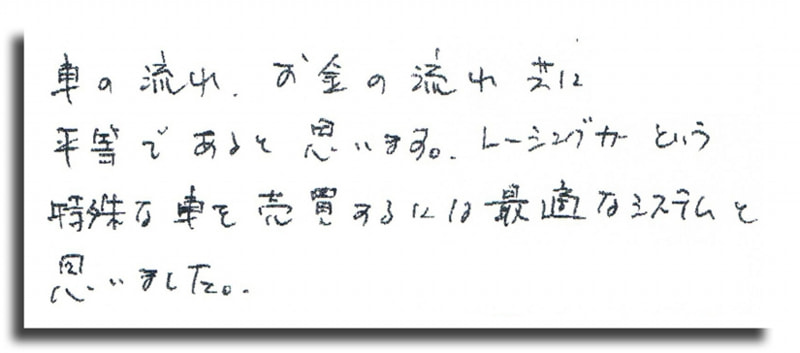 車の流れ、お金の流れ 共に
平等であると思います。レーシングカーという
特殊な車を売買するには最適なシステムと
思いました。